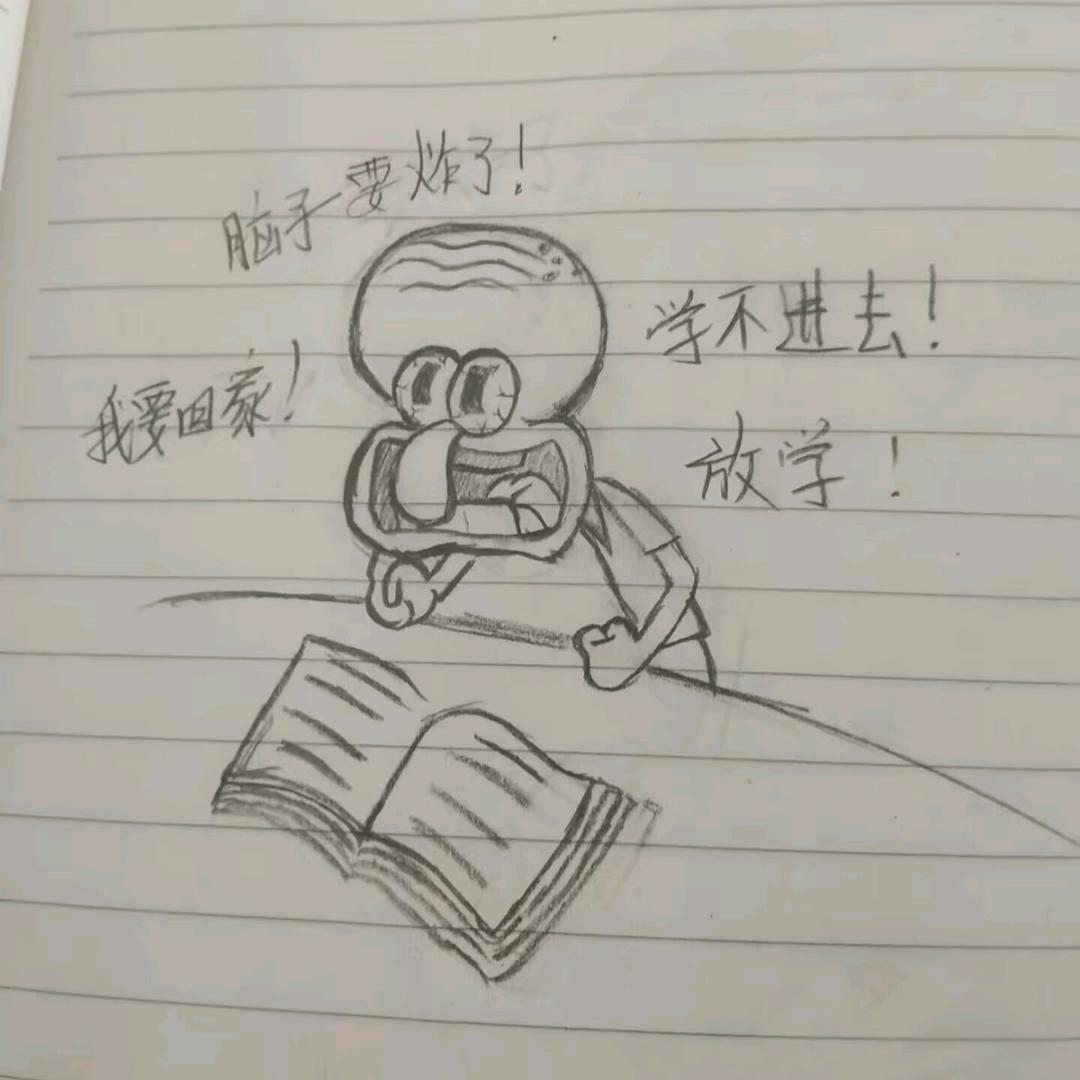 脑子要炸了!
学不进去!
我要回家!
放学!